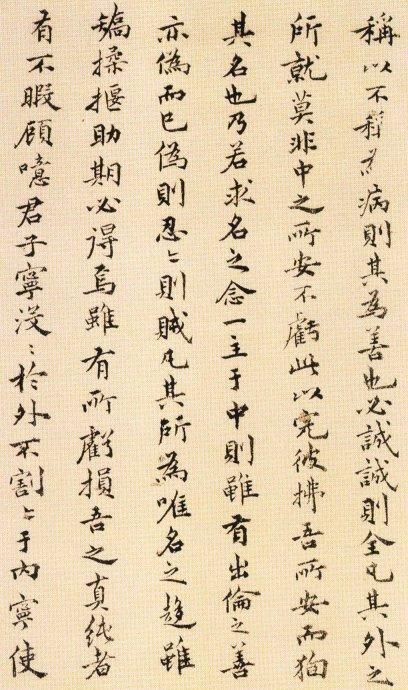 稱以不稱為病則其為善也必誠誠則全凡其外之
所就莫非中之所安不虧此以完彼拂吾所安而狥
其名也乃若求名之念一主于中則雖有出倫之善
亦偽而已偽則忍〻則賊凡其所為唯名之趨雖
矯揉揠助期必得焉雖有所虧損吾之真純者
有不暇顧噫君子寧沒〻於外不割〻于內寧使